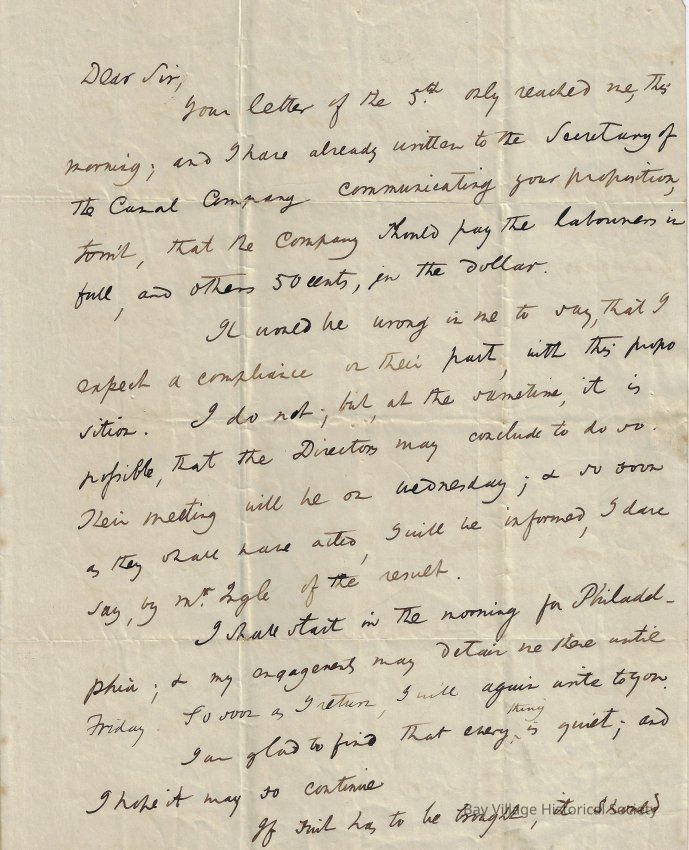 Dear Sir,
Your letter of the 5th. only reached me, this
morning; and I have already written to the Secretary of
the Canal Company communicating your proposition,
towit, that the Company should pay the labourers in
full, and others 50 cents, in the dollar.
It would be wrong in me to say, that I
expect a compliance on their part, with this propo
sition. I do not; but, at the sametime, it is
possible, that the Directors may conclude to do so.
Their meeting will be on wednesday; & so soon
as they shall have acted, I will be informed, I dare
say, by Mr. Ingle of the result.
I shall start in the morning for Philadel-
phia; & my engagements may detain me there until
Friday. So soon as I return, I will again write to you.
I am glad to find that every thing is quiet; and
I hope it may so continue
If suit has to be brought, it should
Bay Village Historical Society